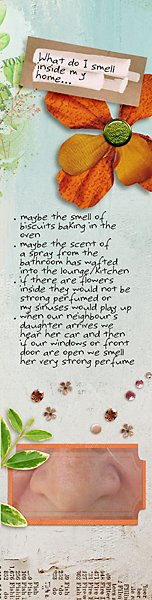 What do I smell
inside my
home...
• maybe the smell of
biscuits baking in the
oven
• maybe the scent of
a spray from the
bathroom has wafted
into the lounge/kitchen
• if there are flowers
inside they would not be
strong perfumed or
my sinuses would play up
• when our neighbour's
daughter arrives we
hear her car and then
if our windows or front
door are open we smell
her very strong perfume